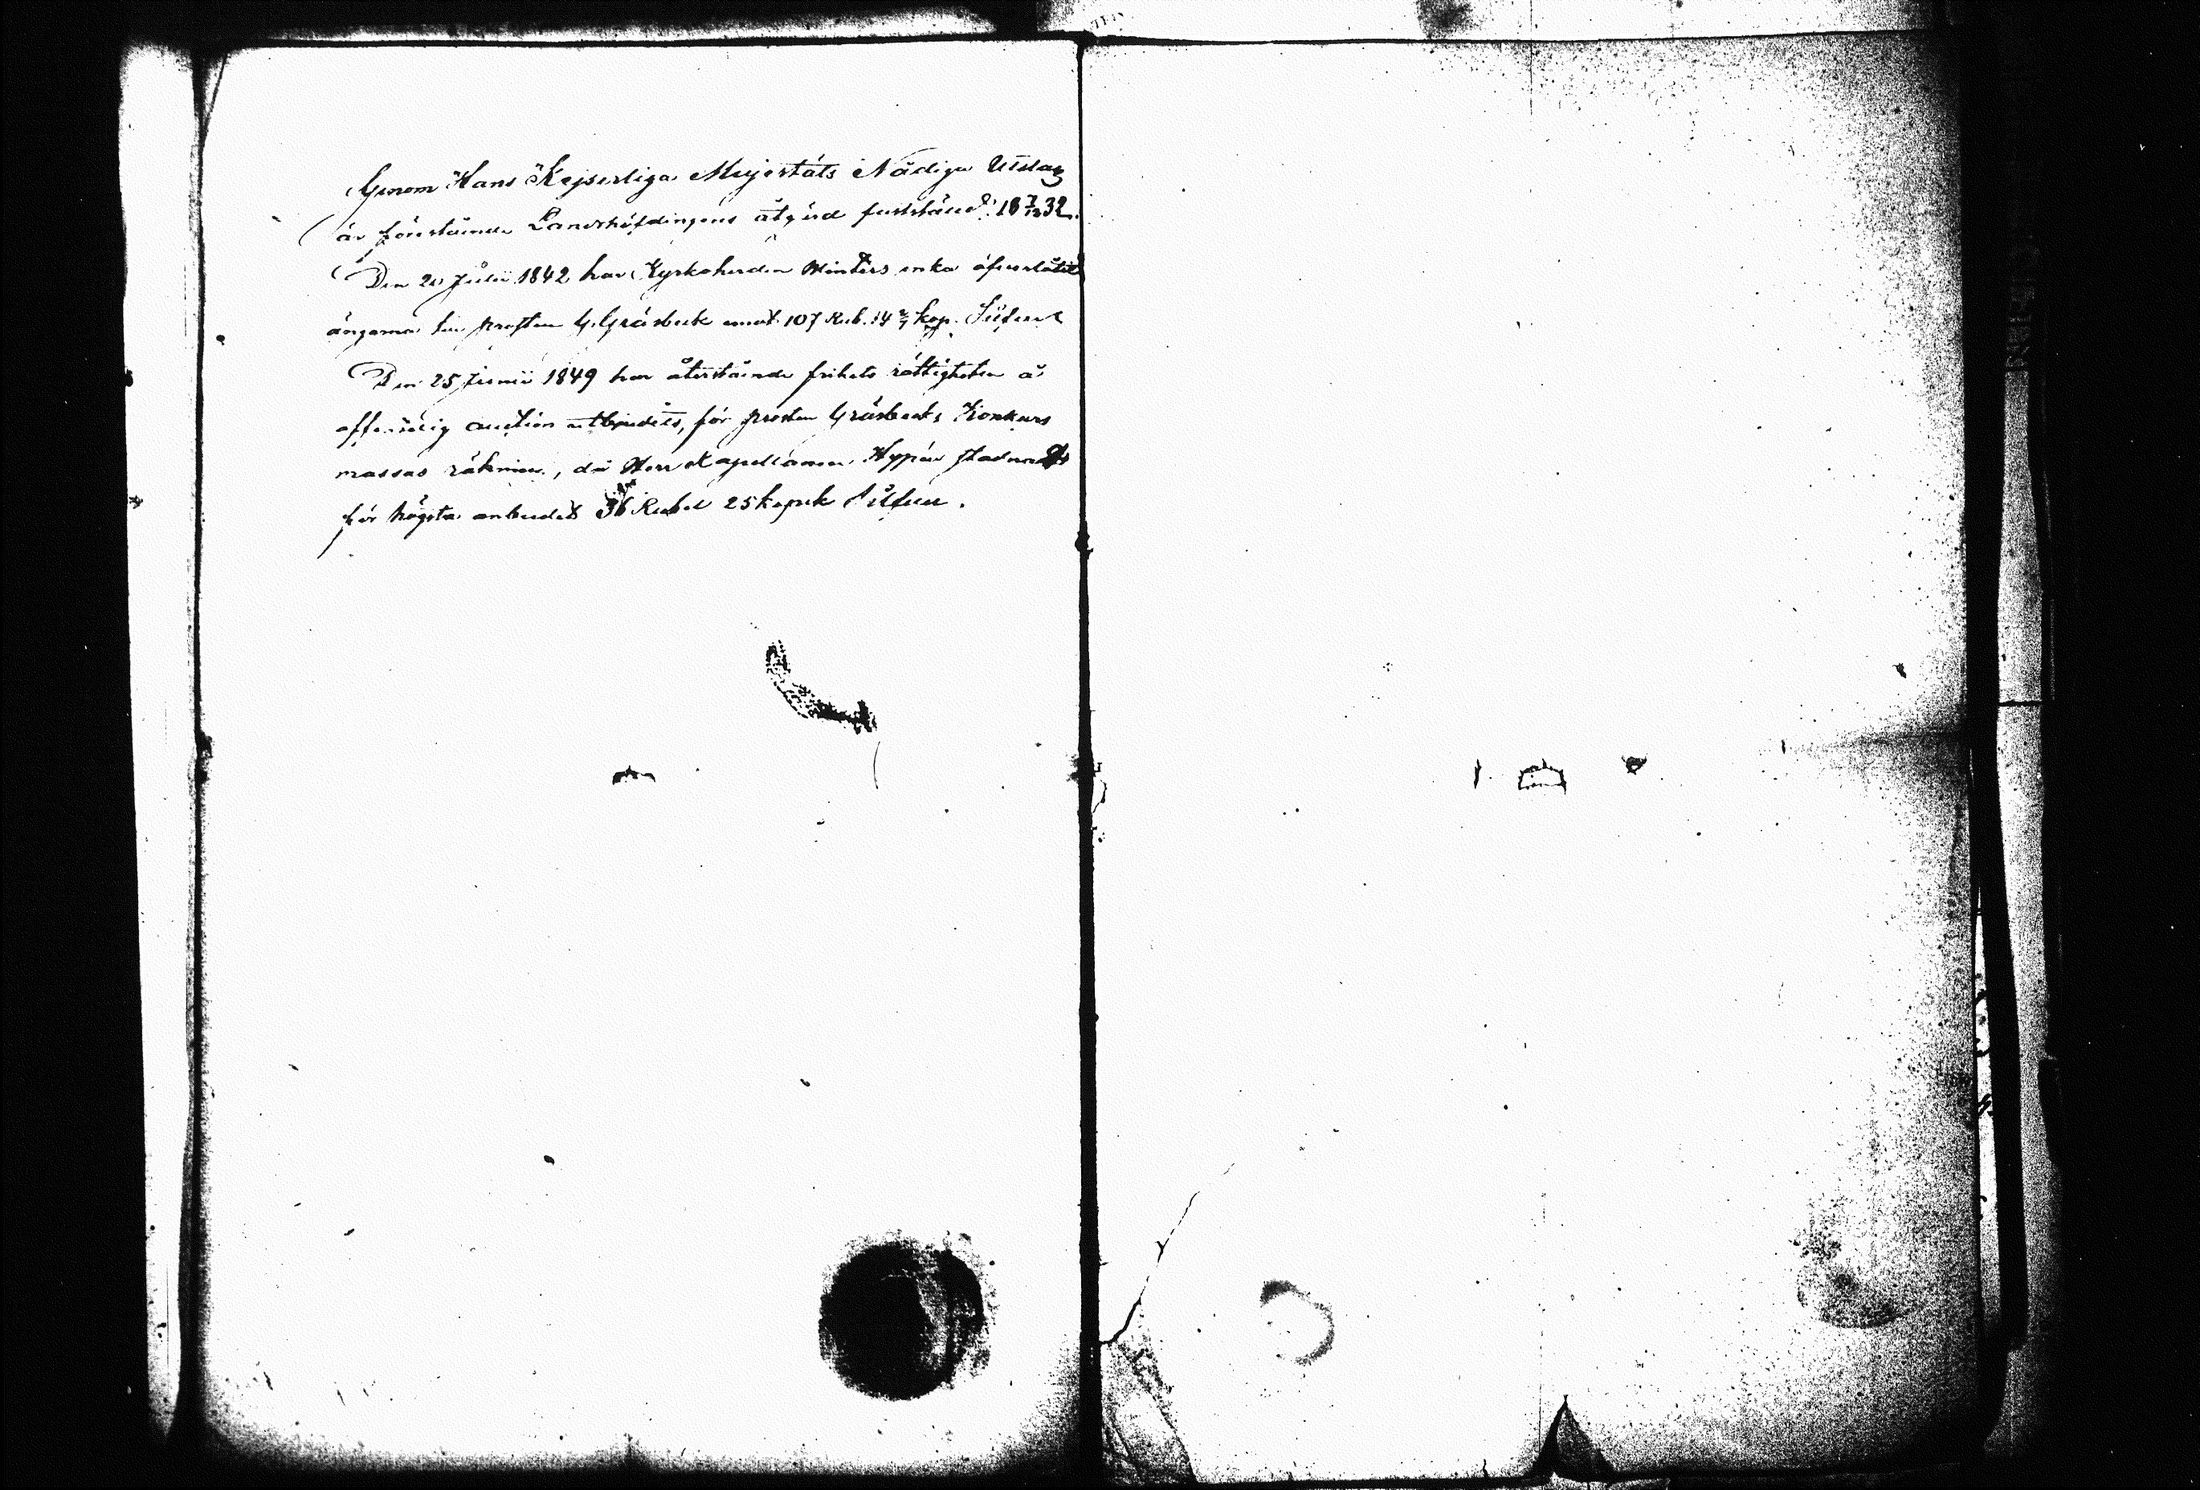 Genom Hans Kejserliga Majestäts Nådiga Utslag
är förestående Landshöfdingens åtgärd fastställd: 18 7/12 32.
Den 20 Julii 1842 har Kyrkoherden Winters enka öfverlåtit
ängarna till prosten G. Gråsbeck emot 107 Rub. 14 2/7 kop. Silfver
Den 25 Junii 1849 har återstående frihets rättigheten å
offentlig auction utbudits, för prosten Gråsbecks Konkurs
massas räkning, då Herr Kapellanen Hyppén stadnade
för högsta anbudet 36 Rubel 25 kopek Silfver.